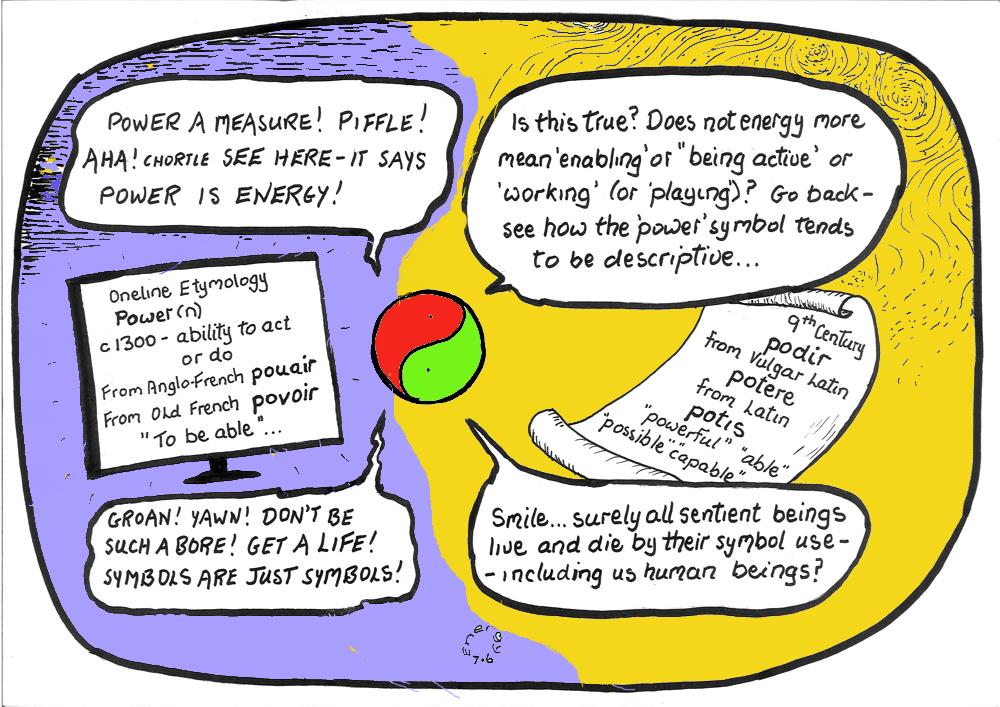 POWER A MEASURE! PIFFLE!
AHA! CHORTLE SEE HERE-IT SAYS
POWER IS ENERGY!
Is this true? Does not energy more
mean 'enabling' or "being active' or
'working' (or 'playing')? Go back-
see how the 'power' symbol tends
to be descriptive...
Oneline Etymology
Power (n)
c1300 - ability to act
or do
From Anglo-French pouair
From Old French povoir
"To be able"...
9th Century
podir
from Vulgar Latin
potere
from Latin
potis
"powerful" "able"
"possible" "capable"
GROAN! YAWN! DON'T BE
SUCH A BORE! GET A LIFE!
SYMBOLS ARE JUST SYMBOLS!
Smile... surely all sentient beings
live and die by their symbol use-
-including us human beings?
7.6